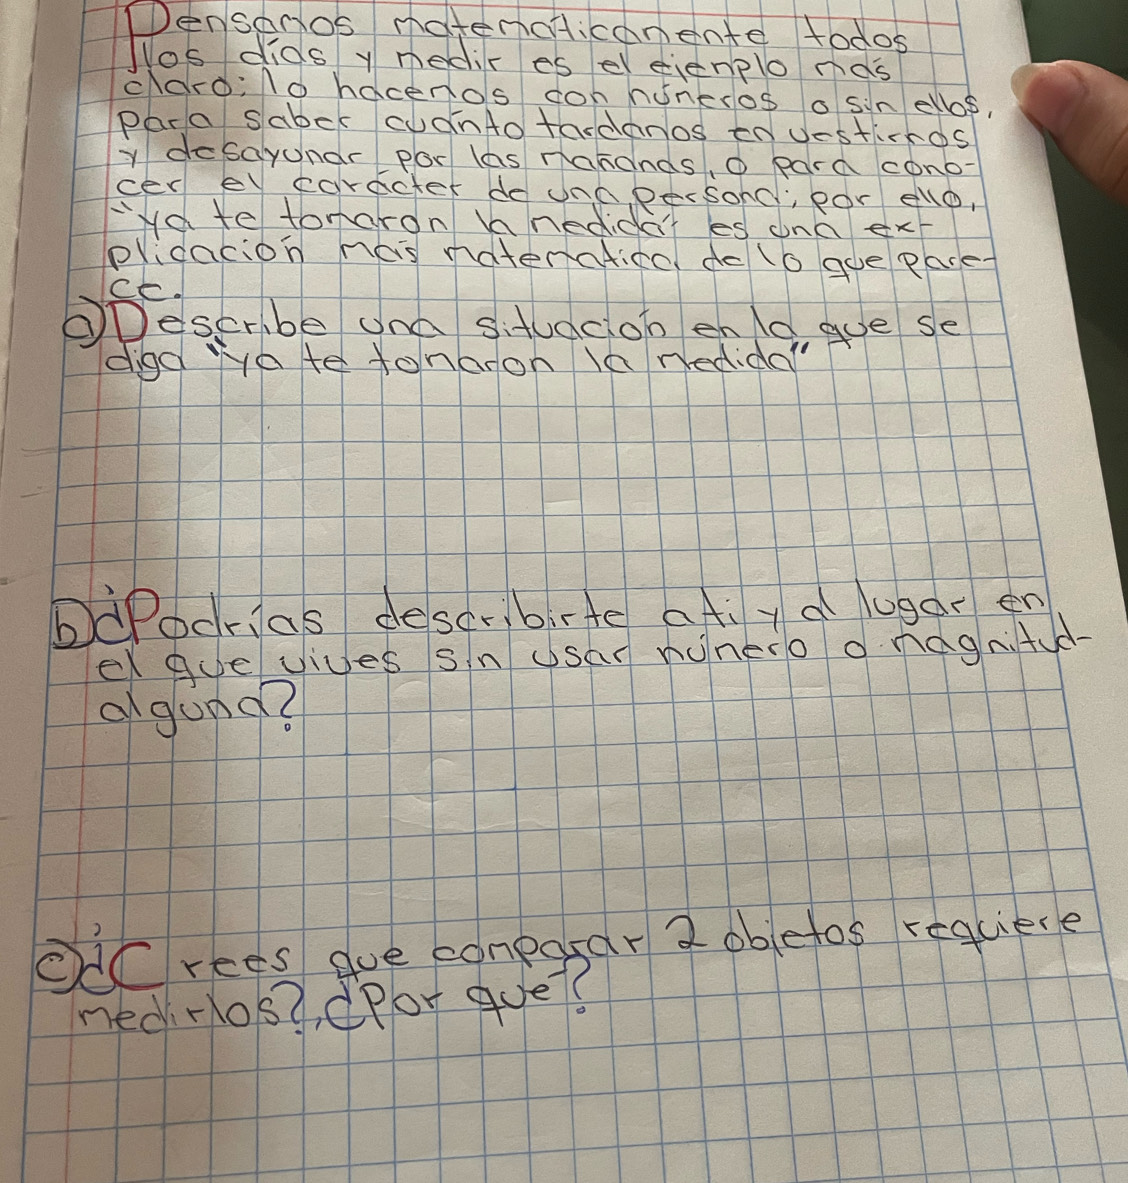 Pensamos matemáticamente todos
los días y medir es el ejemplo más
claro: lo hacemos con números o sin ellos,
para saber cuánto tardamos en vestirnos
y desayunar por las mañanas, o para cono-
cer el carácter de una persona; por ello,
"ya te tomaron la medida" es una ex-
plicación más matemática de lo que pare-
ce.
a) Describe una situación en la que se
diga "ya te tomaron la medida"
b) ¿Podrías describirte a ti y al lugar en
el que vives sin usar número o magnitud
alguna?
c) ¿Crees que comparar 2 objetos requiere
medirlos?, ¿Por qué?